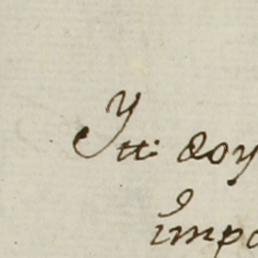 Ytt: doy
impo